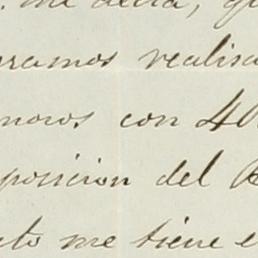 me decia, q
ramos realisa
nows con 40
posicion del B
to me tiene e